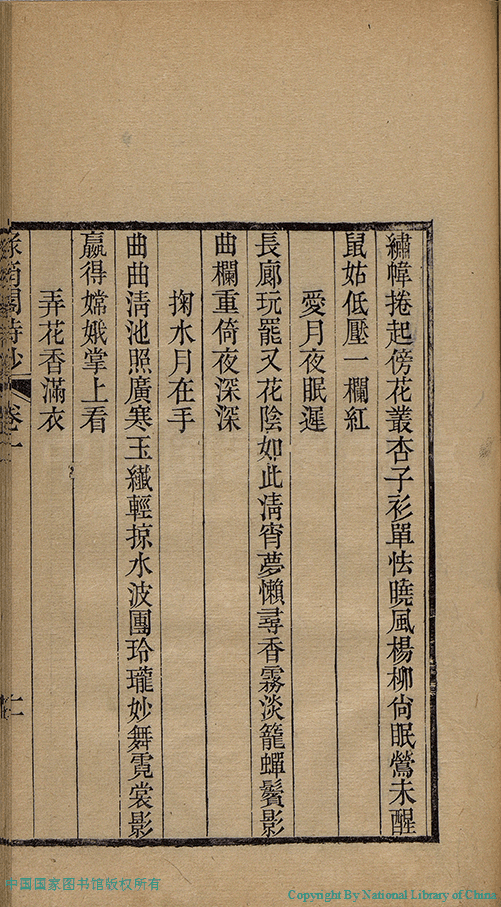 繡幃捲起傍花叢杏子衫單怯曉風楊柳尙眠鶯未醒
鼠姑低壓一欄紅
愛月夜眠遲
長廊玩罷又花陰如此淸宵夢懶尋香霧淡籠蟬鬢影
曲欄重倚夜深深
掬水月在手
曲曲淸池照廣寒玉纖輕掠水波團玲瓏妙舞霓裳影
贏得嫦娥掌上看
弄花香滿衣
卷一
中国国家图书馆版权所有
Copyright By National Library of China